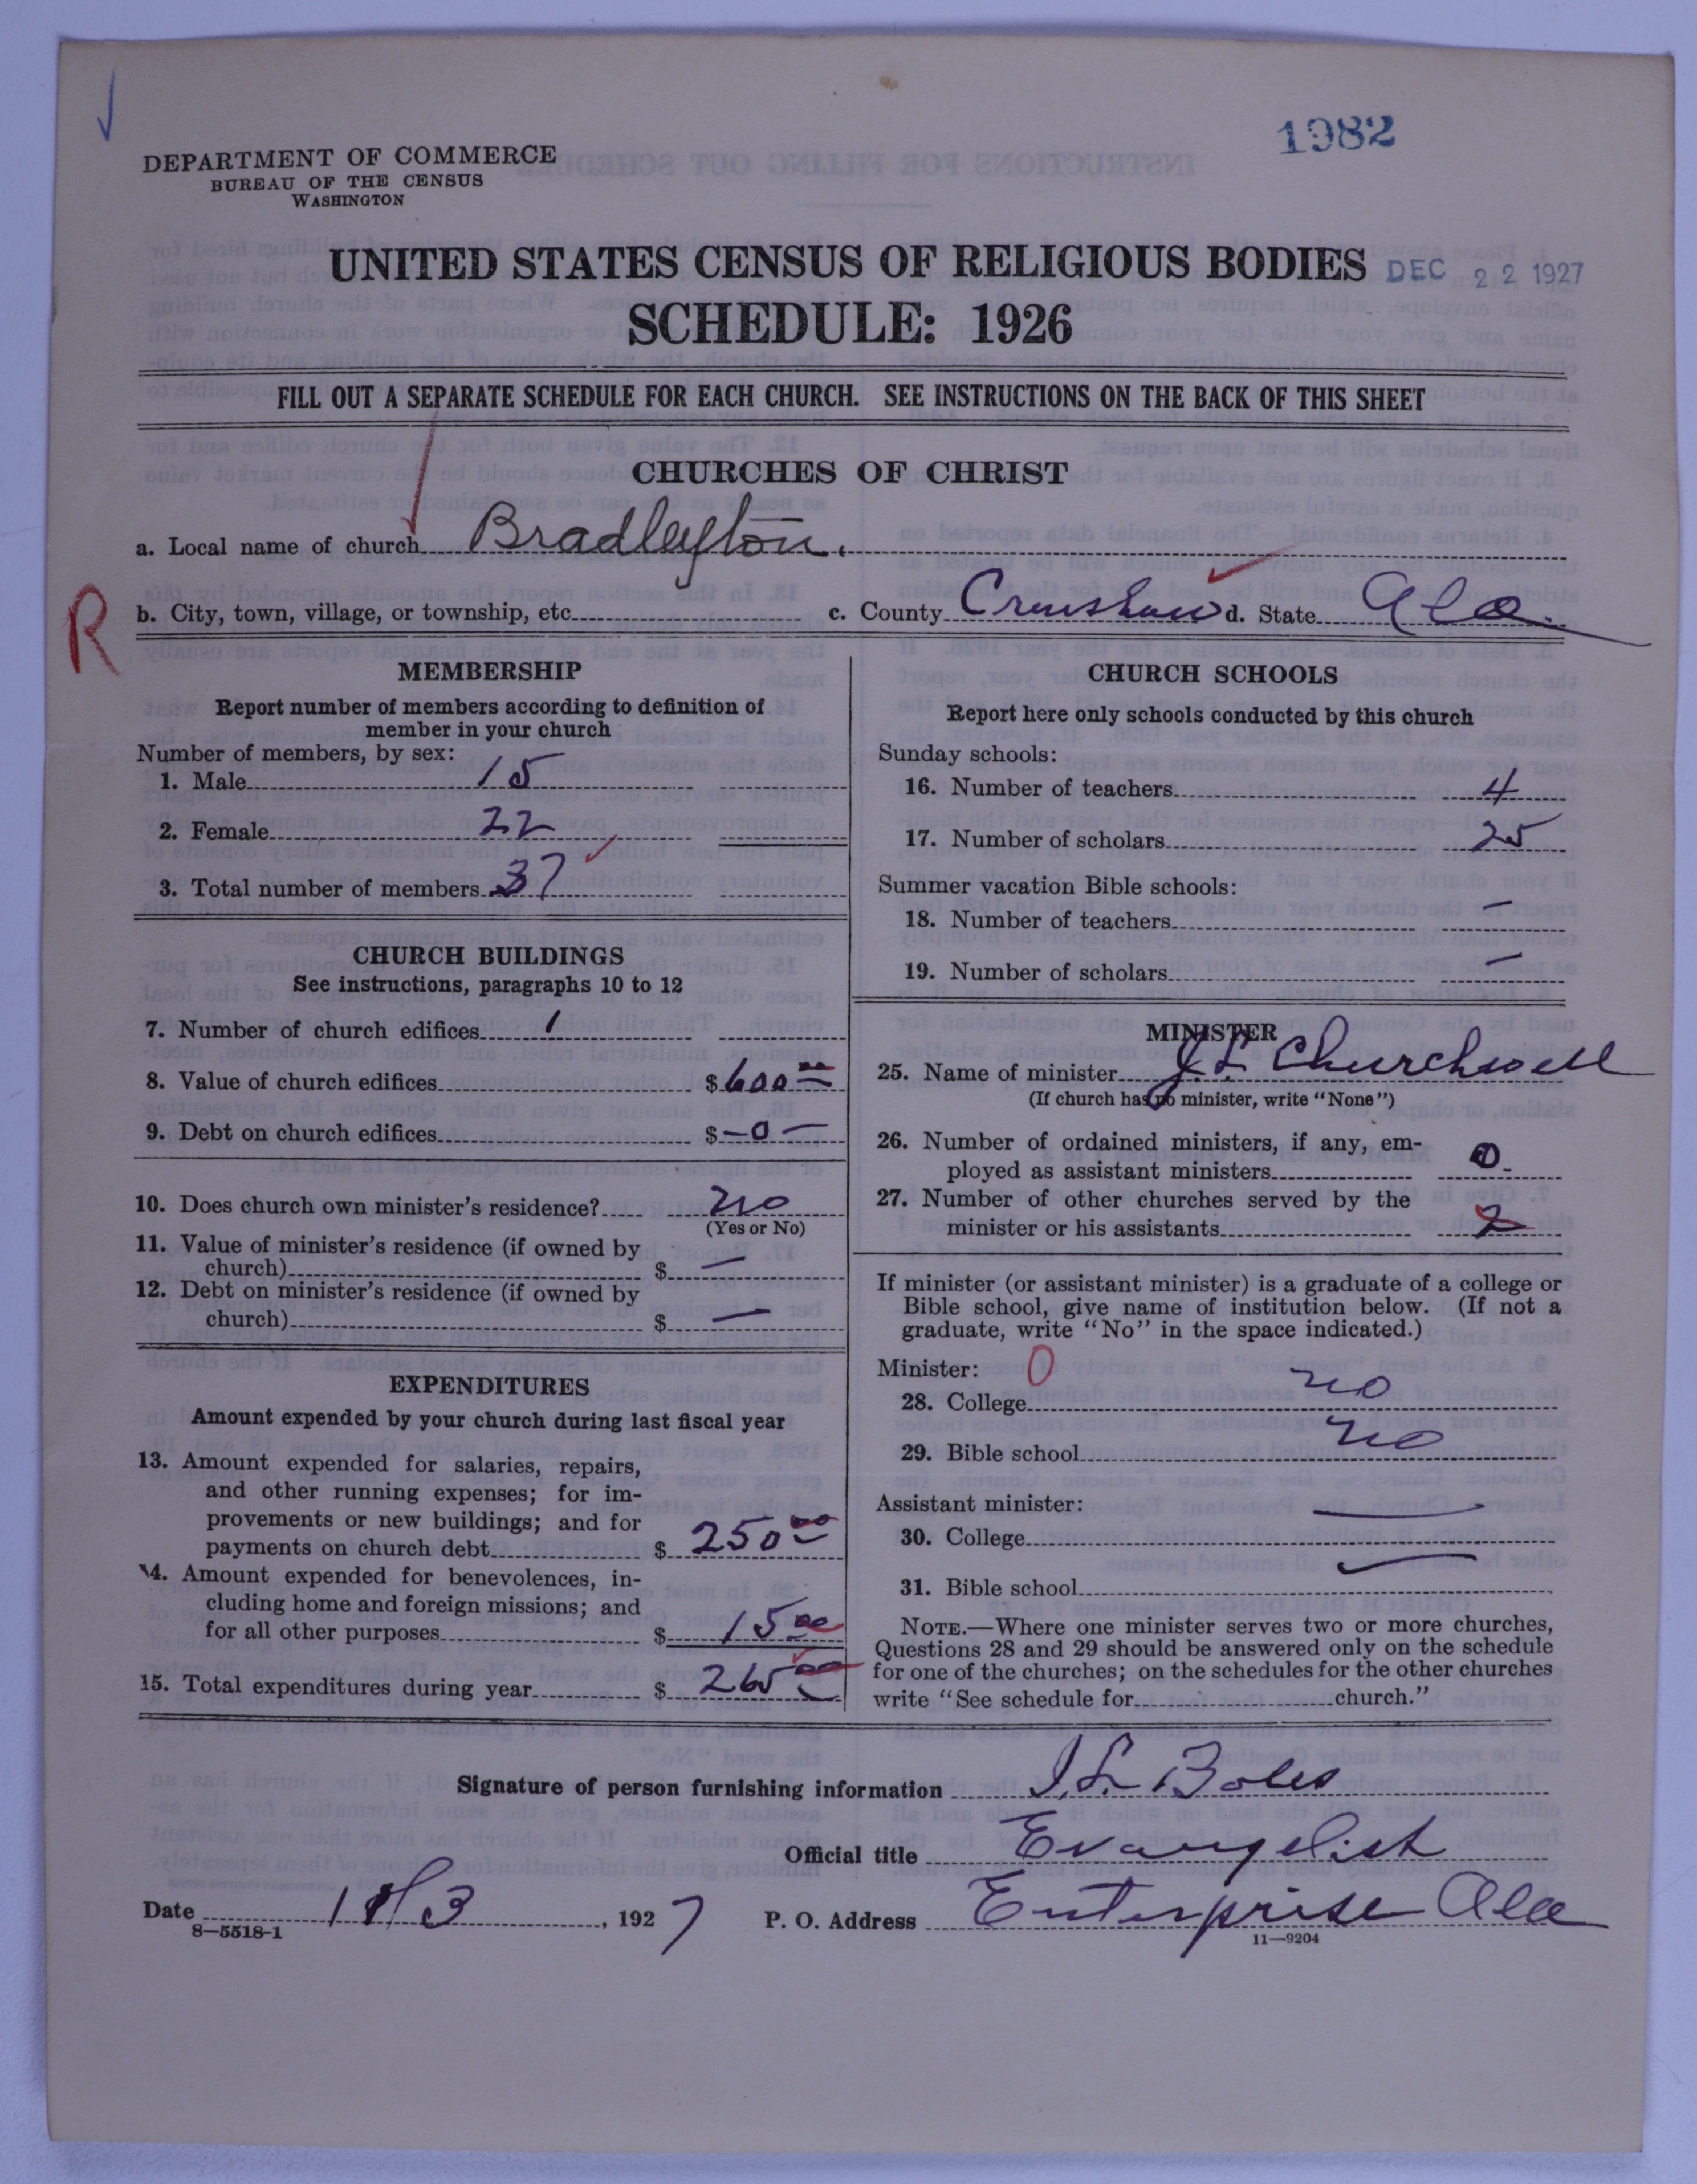 1982
DEPARTMENT OF COMMERCE
BUREAU OF THE CENSUS
WASHINGTON
UNITED STATES CENSUS OF RELIGIOUS BODIES
DEC 22 1927
SCHEDULE: 1926
FILL OUT A SEPARATE SCHEDULE FOR EACH CHURCH. SEE INSTRUCTIONS ON THE BACK OF THIS SHEET
CHURCHES OF CHRIST
a. Local name of church Bradleyton.
R
b. City, town, village, or township, etc. c. County Crenshaw d. State Ala.
MEMBERSHIP
Report number of members according to definition of
member in your church
Number of members, by sex:
1. Male 15
2. Female 22
3. Total number of members 37
CHURCH BUILDINGS
See instructions, paragraphs 10 to 12
7. Number of church edifices 1
8. Value of church edifices $600 00
9. Debt on church edifices $-0-
10. Does church own minister's residence? no
(Yes or No)
11. Value of minister's residence (if owned by
church) $ —
12. Debt on minister's residence (if owned by
church) $ —
EXPENDITURES
Amount expended by your church during last fiscal year
13. Amount expended for salaries, repairs,
and other running expenses; for im-
provements or new buildings; and for
payments on church debt $ 250 00
14. Amount expended for benevolences, in-
cluding home and foreign missions; and
for all other purposes $ 15 00
15. Total expenditures during year $ 265 00
CHURCH SCHOOLS
Report here only schools conducted by this church
Sunday schools:
16. Number of teachers 4
17. Number of scholars 25
Summer vacation Bible schools:
18. Number of teachers —
19. Number of scholars —
MINISTER
25. Name of minister J. L. Churchwell
(If church has no minister, write "None")
26. Number of ordained ministers, if any, em-
ployed as assistant ministers 0
27. Number of other churches served by the
minister or his assistants 2
If minister (or assistant minister) is a graduate of a college or
Bible school, give name of institution below. (If not a
graduate, write "No" in the space indicated.)
Minister: 0
28. College no
29. Bible school no
Assistant minister:
30. College —
31. Bible school —
NOTE.—Where one minister serves two or more churches,
Questions 28 and 29 should be answered only on the schedule
for one of the churches; on the schedules for the other churches
write "See schedule for church."
Signature of person furnishing information J. L. Boles
Official title Evangelist
Date 11/3, 1927 P. O. Address Enterprise Ala
8—5518-1
11—9204